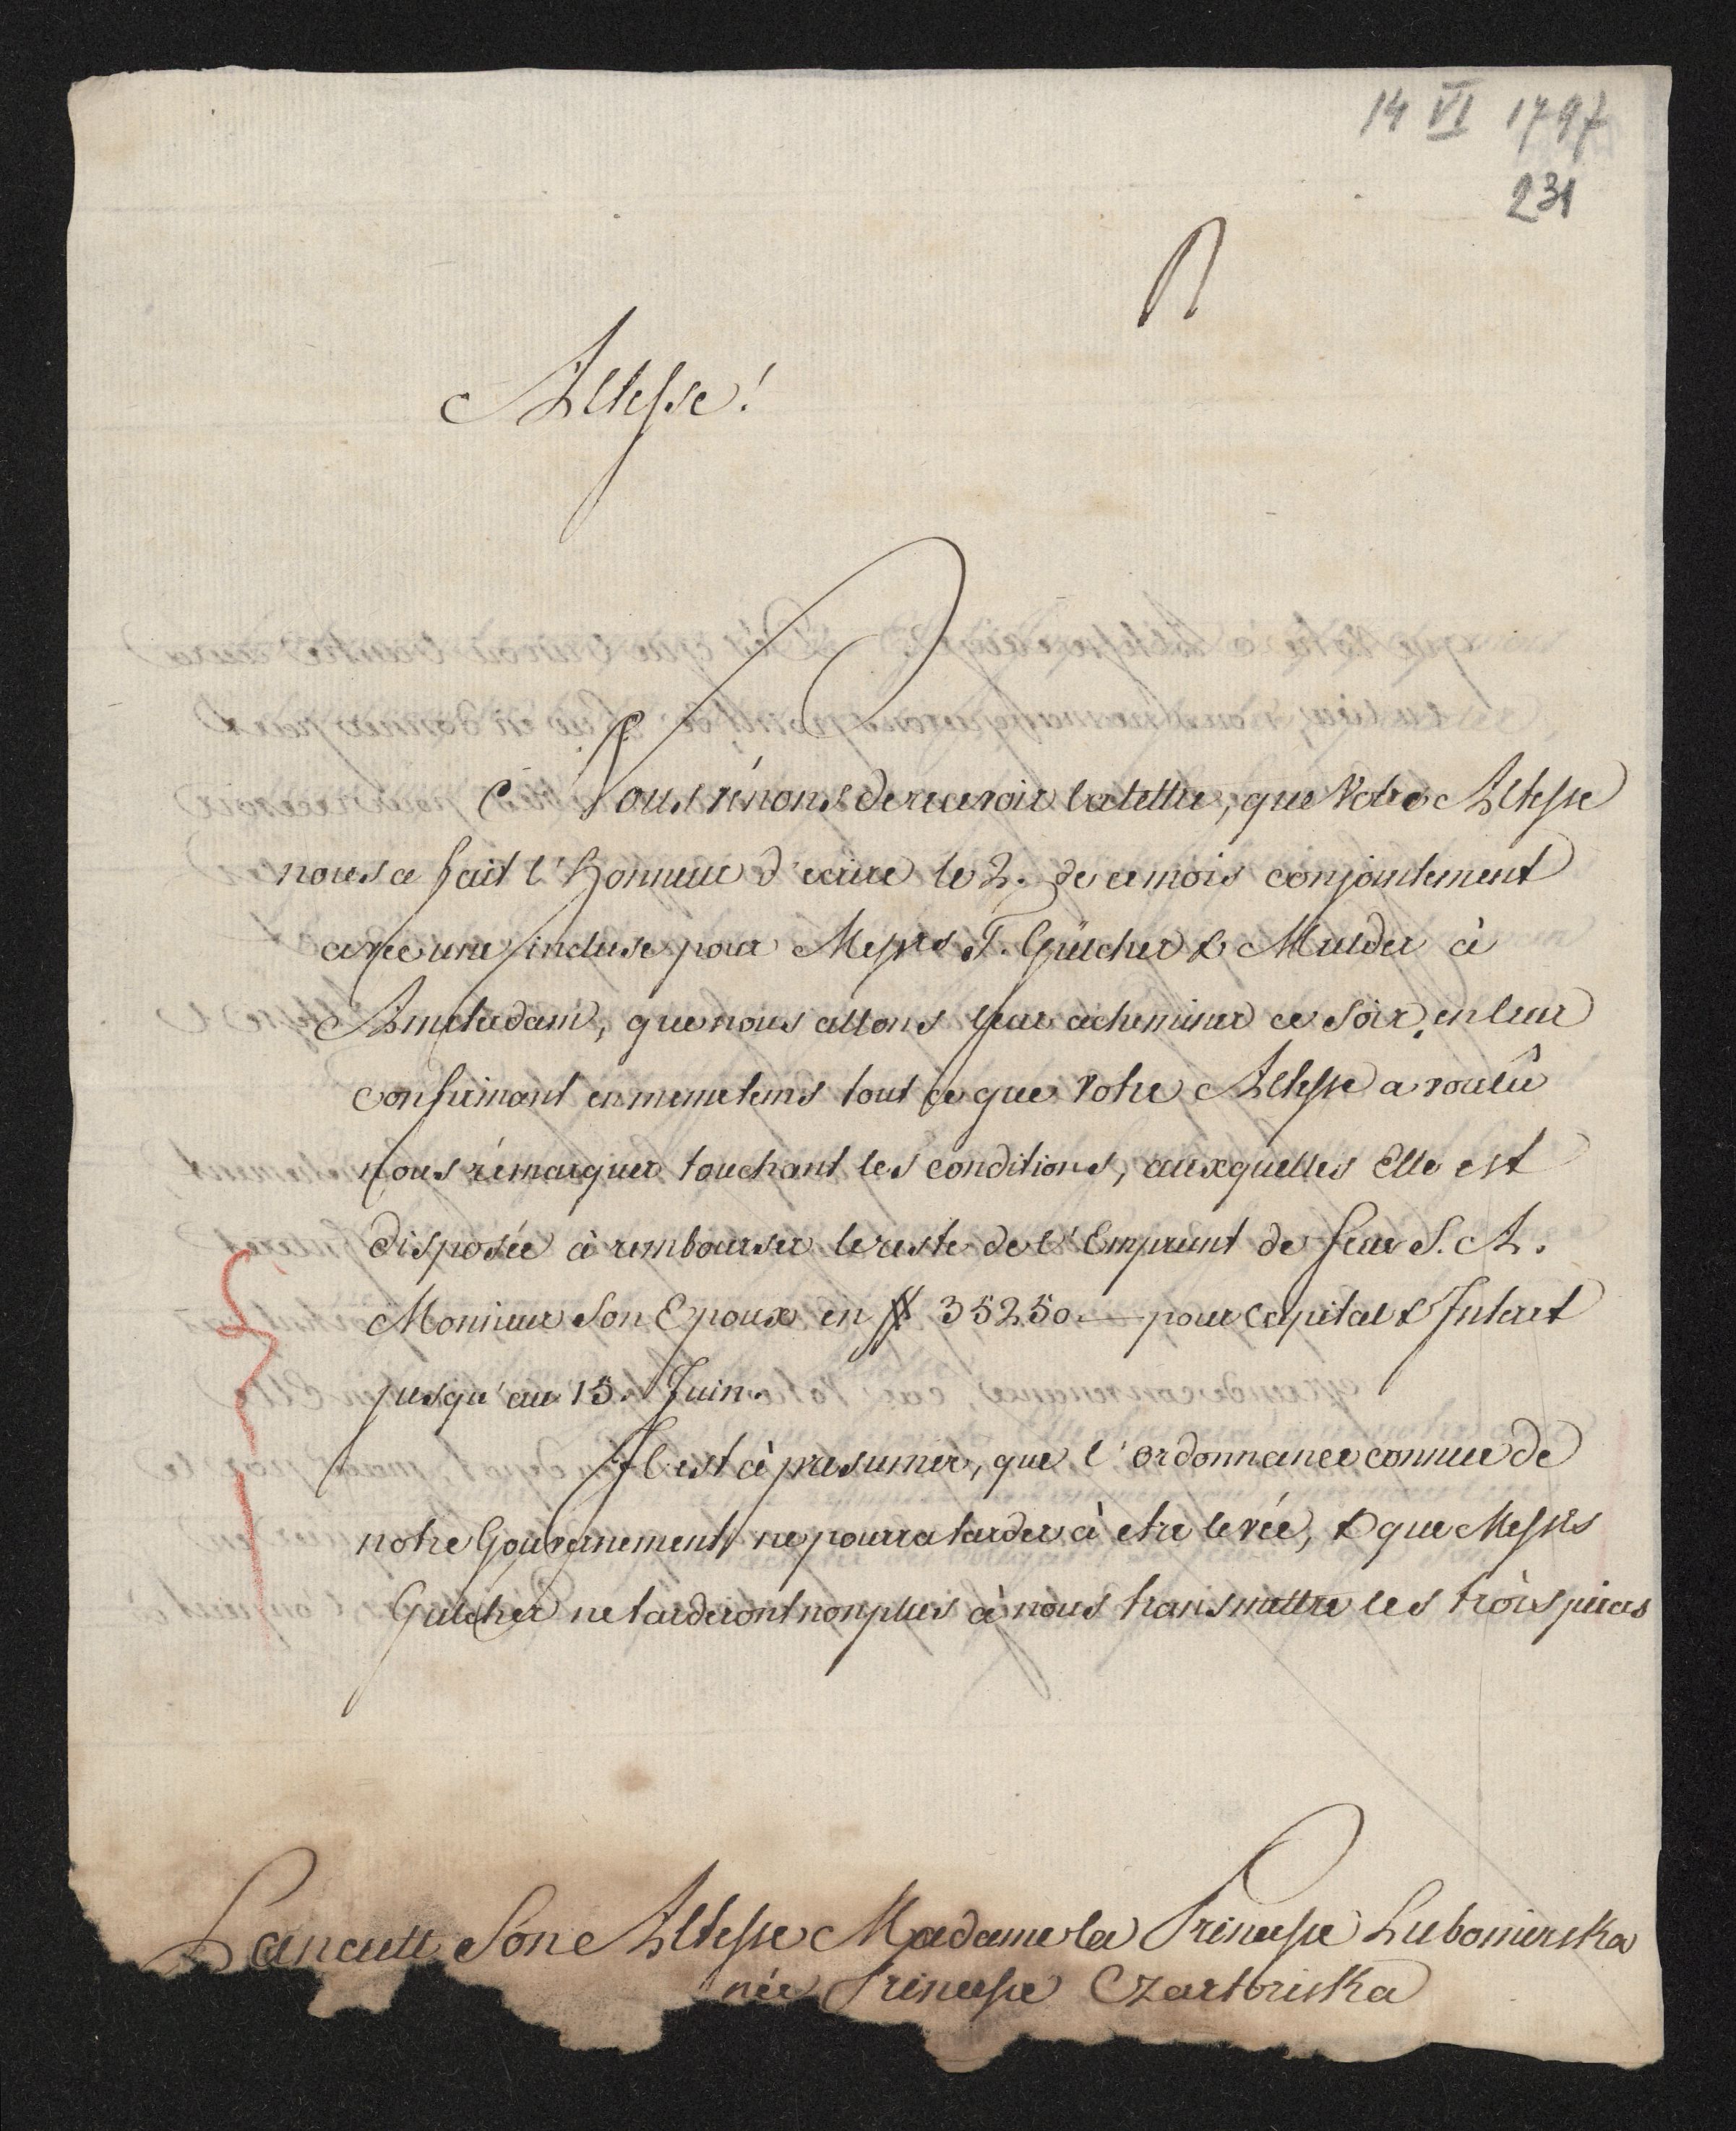 14 VI 1797
231
Altesse!
Nous vénons de recevoir la lettre, que Votre Altesse
nous a fait l'Honneur d'ecrire le 2. de ce mois conjointement
avec une incluse pour Messrs T. Gülcher & Mulder à
Amsterdam, que nous allons leur acheminer ce soir, en leur
confirmant en meme tems tout ce que Votre Altesse a voulû
nous rémarquer touchant les conditions, auxquelles Elle est
disposée à rembourser le reste de l'Emprunt de feue S. A.
Monsieur Son Epoux en 35250 — pour Capital & Interet
jusqu'au 15. Juin.
Il est à presumer, que l'ordonnance connue de
notre Gouvernement ne pourra tarder à etre levée, & que Messrs
Gulcher ne tarderont non plus à nous transmettre les trois pieces
Lancutt Son Altesse Madame la Princesse Lubomirska
née Princesse Czartoriska